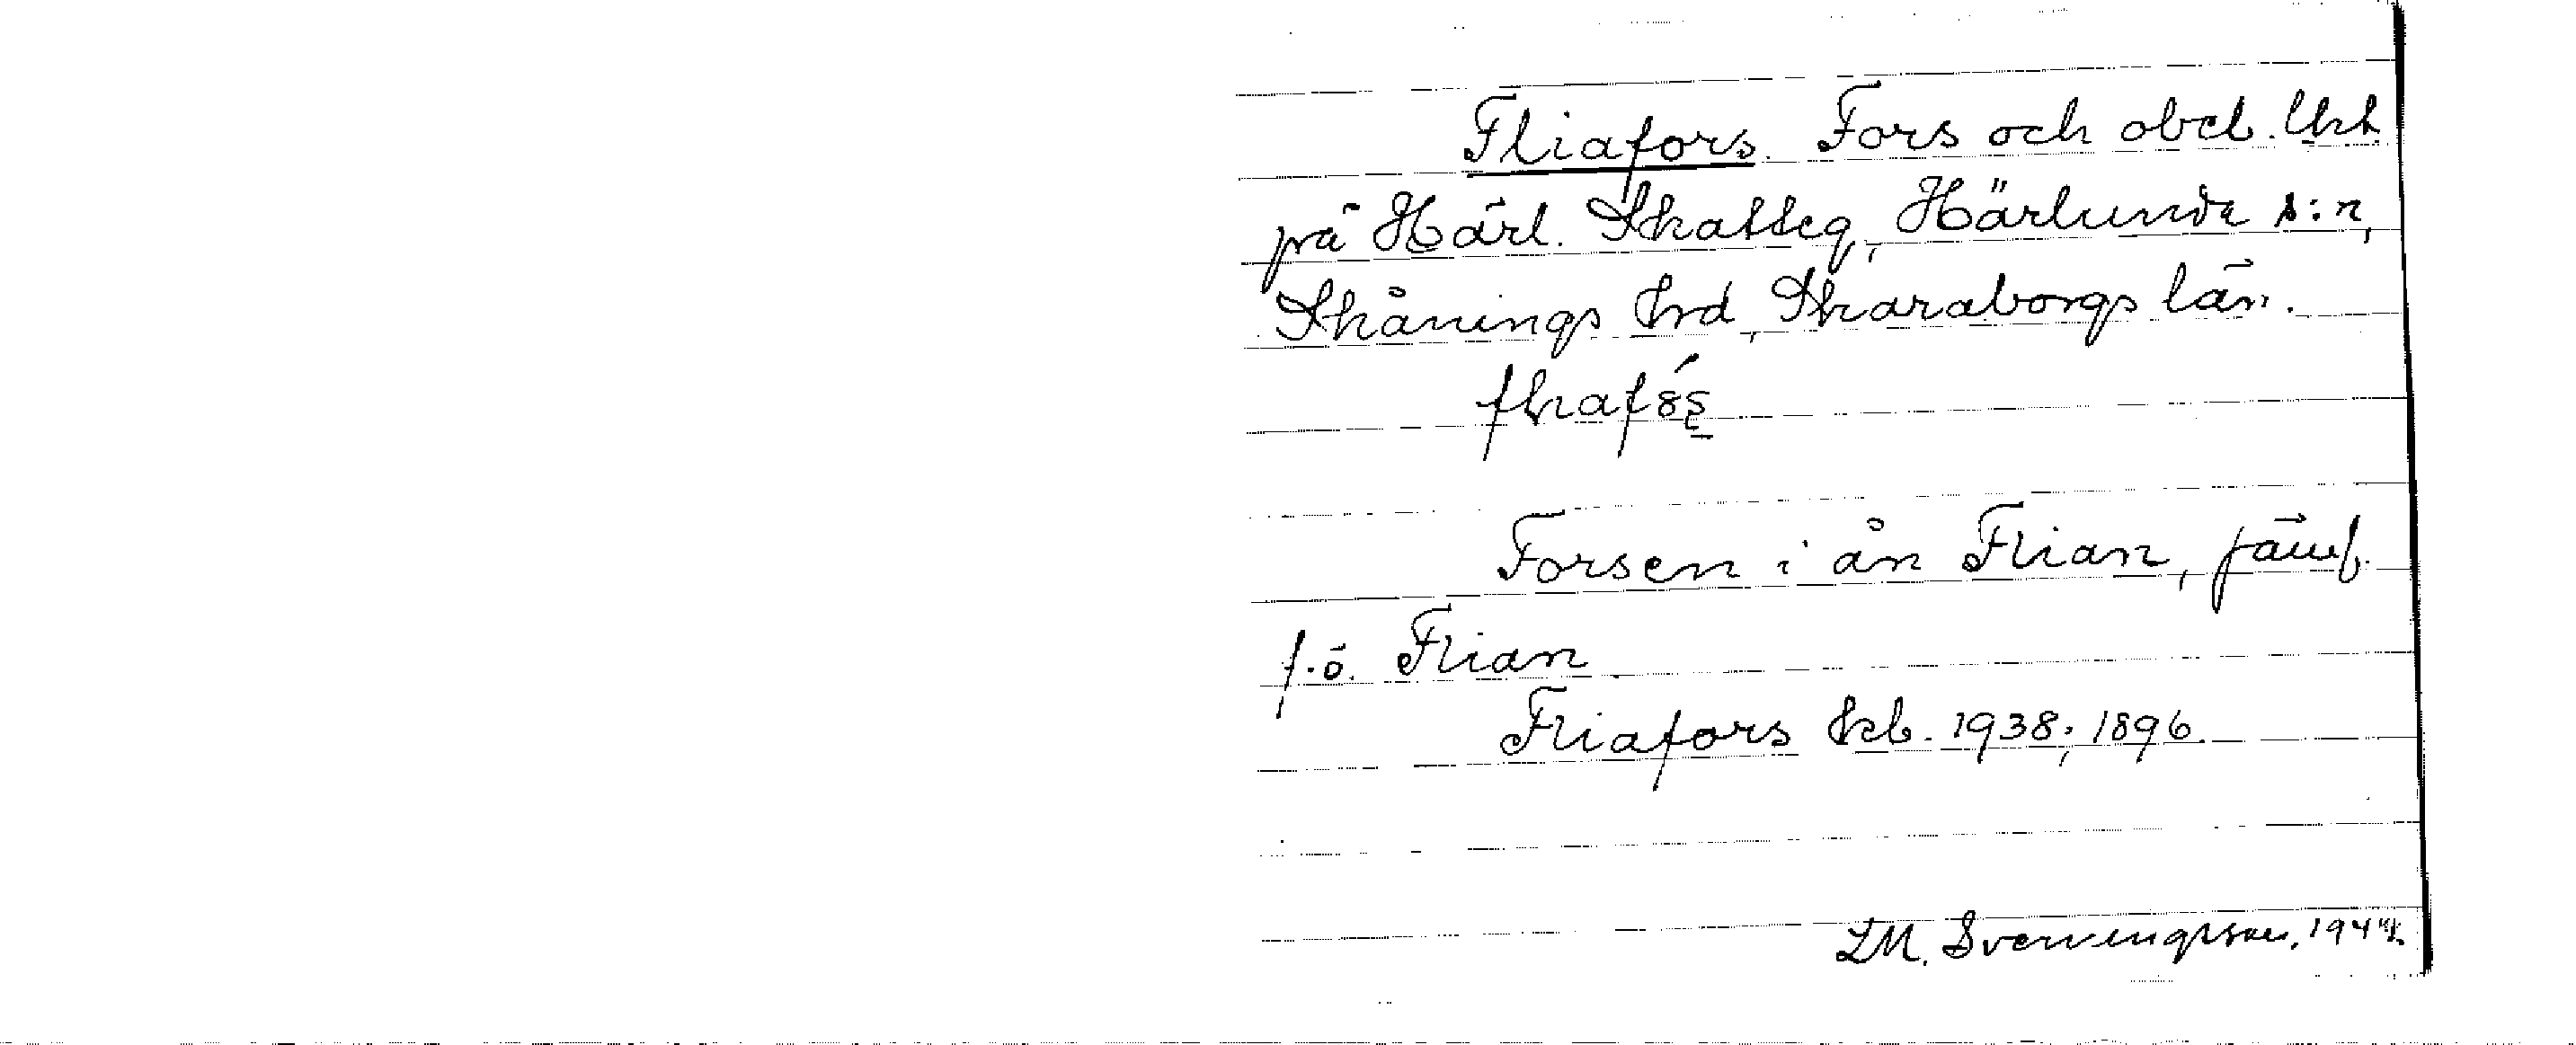 Fliafors. Fors och obeb. lht
på Härl. Skatteg, Härlunda s:n,
Skånings hrd, Skaraborgs län.
Forsen i ån Flian, jämf.
f.ö. Flian
Fliafors kb. 1938; 1896.
LM. Svenningsson,